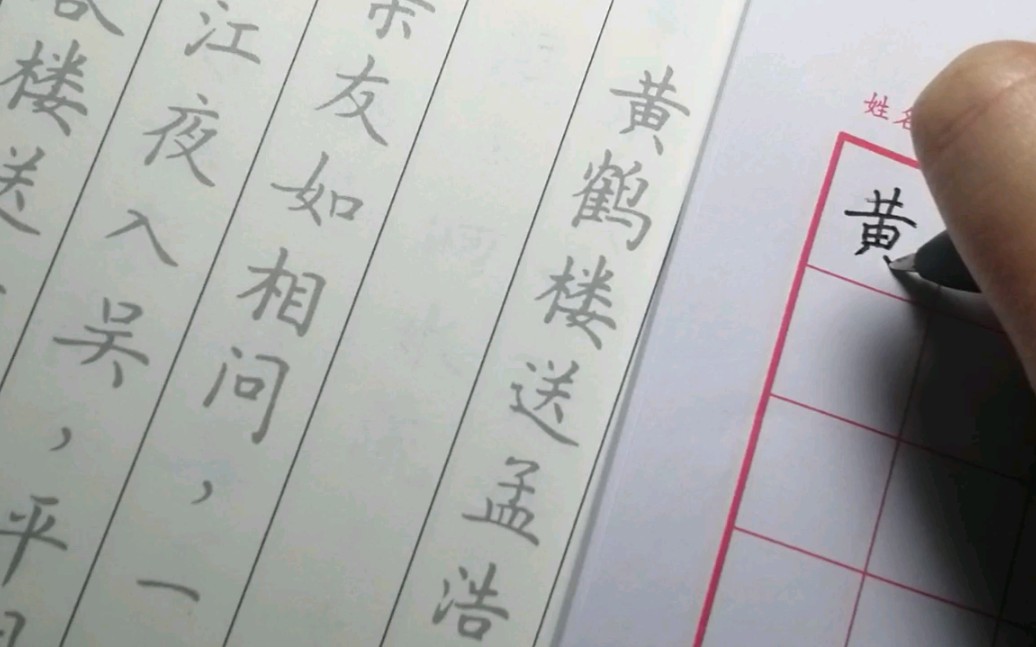 姓名
黄
黄鹤楼送孟浩
亲友如相问，一
江夜入吴，平
楼送